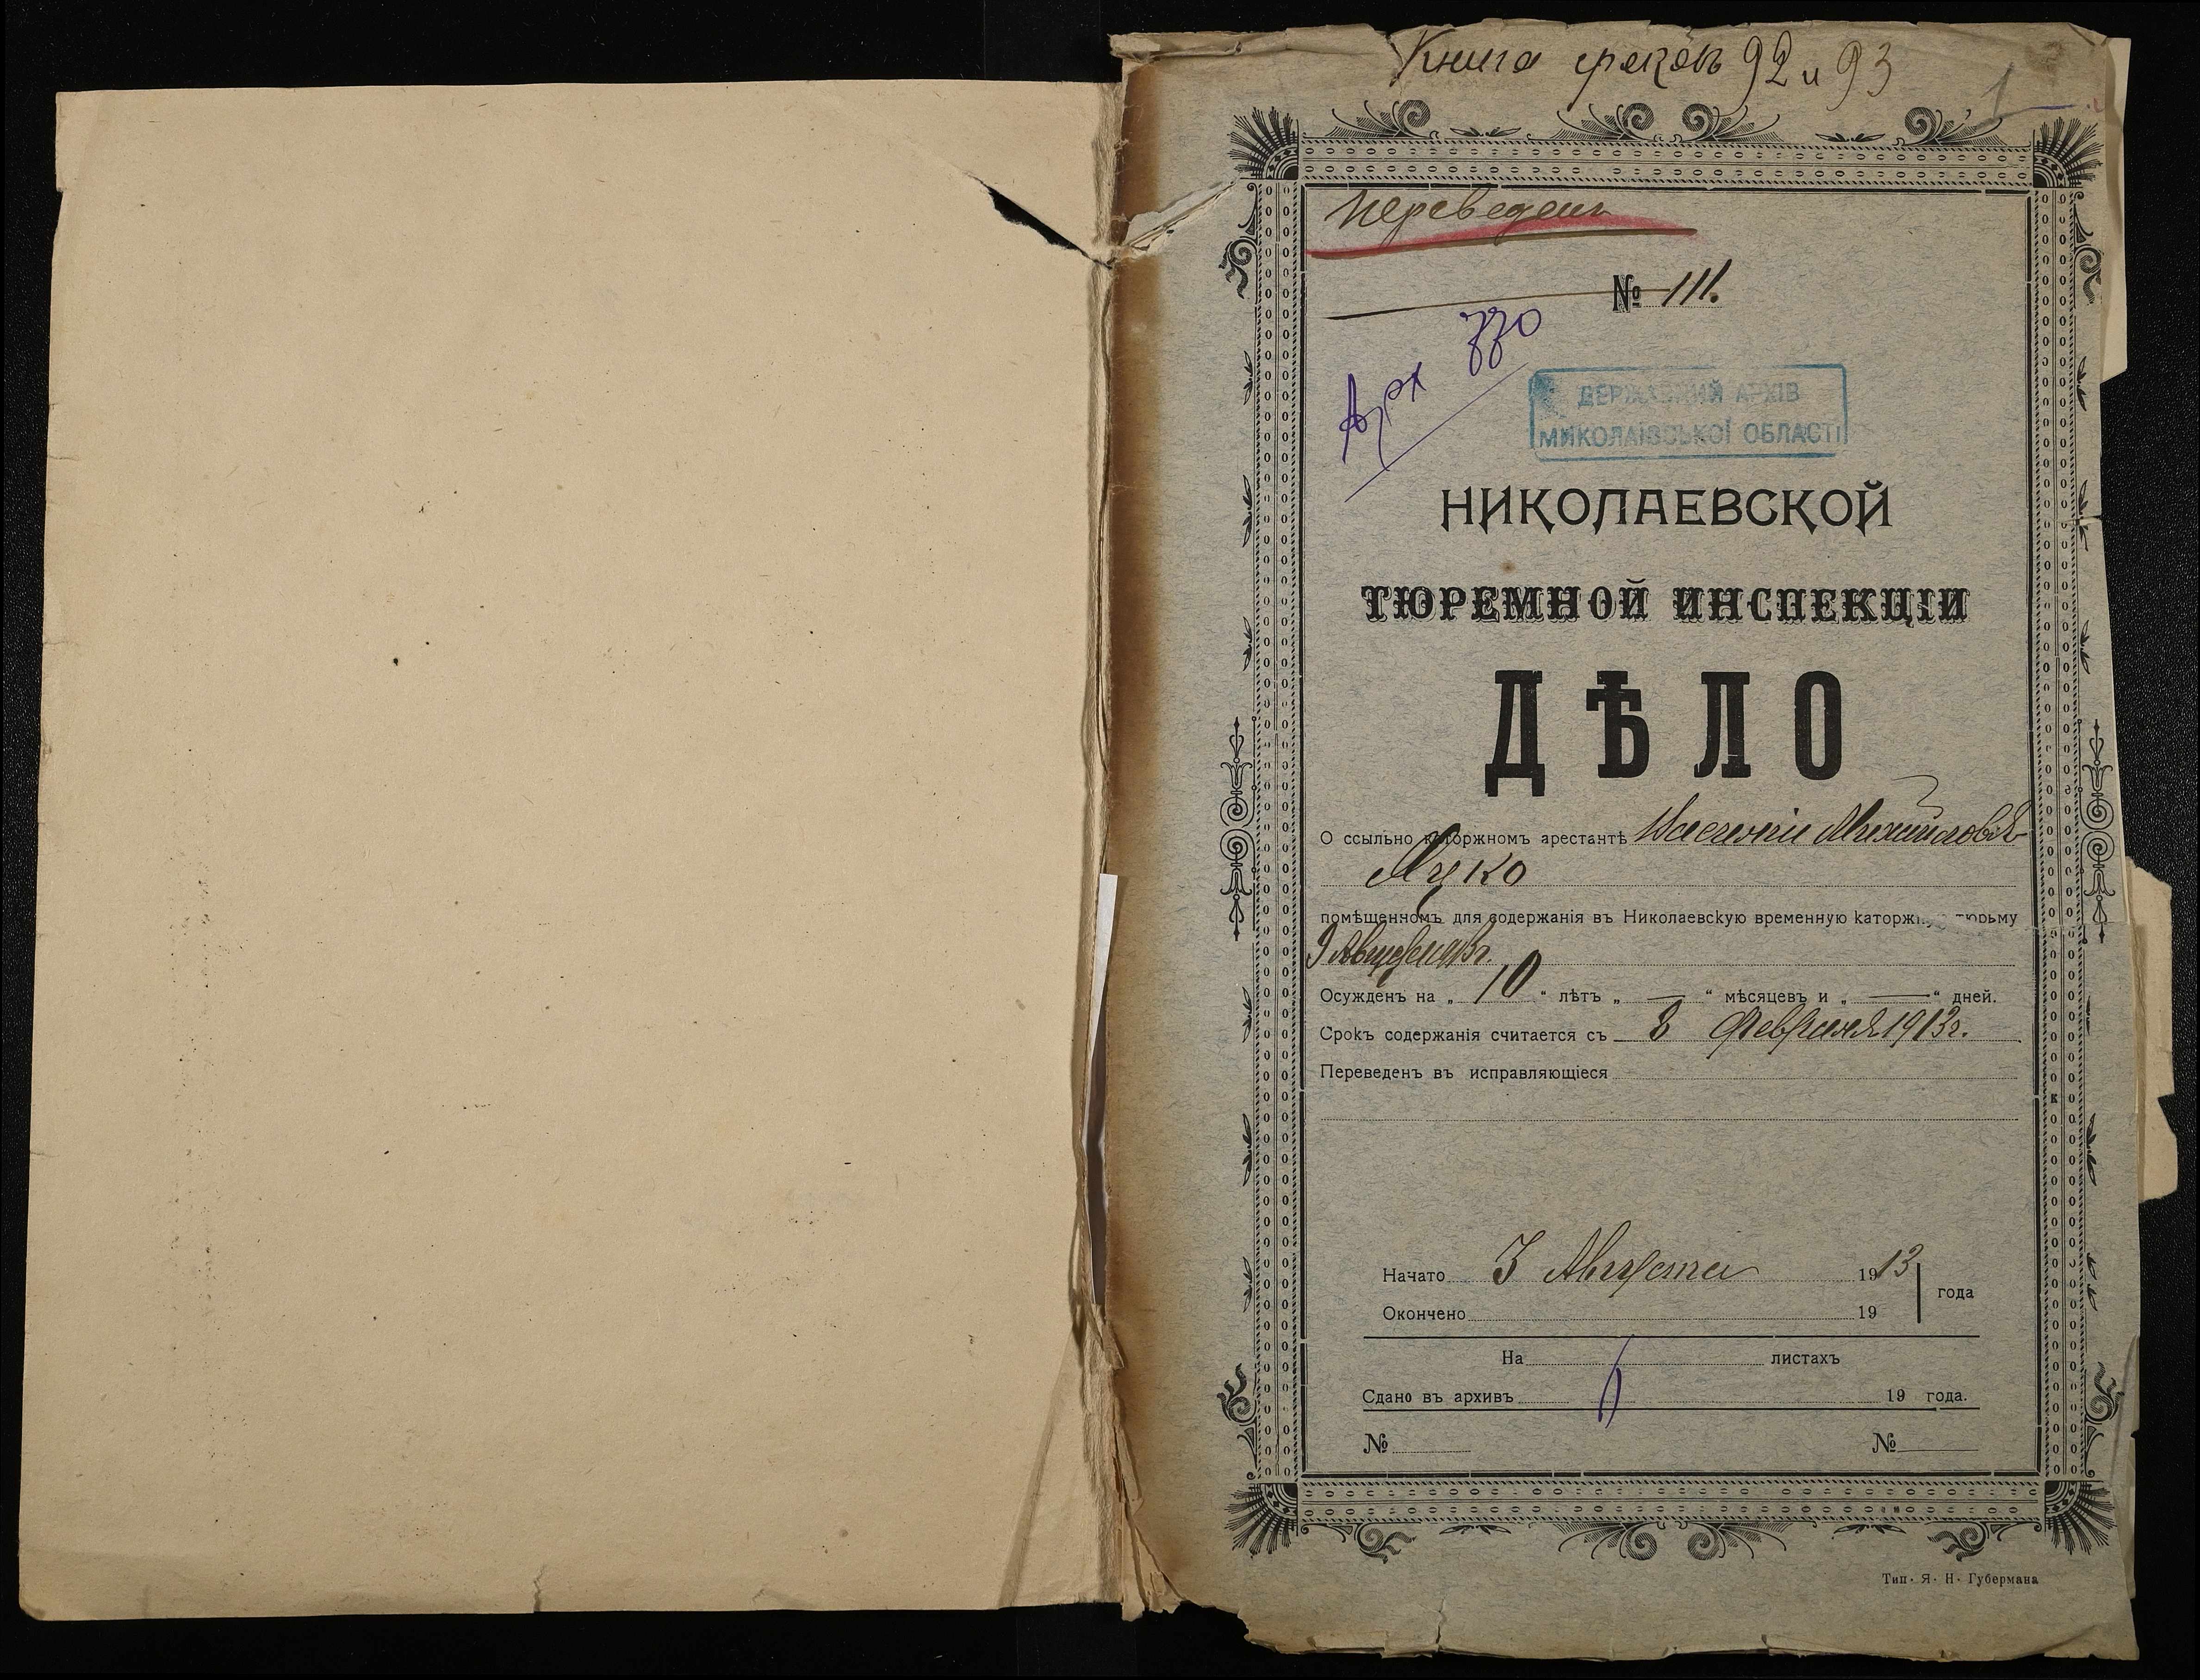 Книга сроковъ 92 и 93
1
Переведенъ
№ 111.
Арх 770
ДЕРЖАВНИЙ АРХІВ
МИКОЛАЇВСЬКОЇ ОБЛАСТІ
НИКОЛАЕВСКОЙ
ТЮРЕМНОЙ ИНСПЕКЦІИ
ДѢЛО
О ссыльно каторжномъ арестантѣ Василіи Михайловѣ
Яцко
помѣщенномъ для содержанія въ Николаевскую временную каторжную тюрьму
Августа 1913г.
Осужденъ на „ 10 “ лѣтъ „ — “ мѣсяцевъ и „ — “ дней.
Срокъ содержанія считается съ 8 Февраля 1913г.
Переведенъ въ исправляющіеся
Начато 3 Августа 1913
года
Окончено 19
На листахъ
Сдано въ архивъ 19 года.
№ №
Тип. Я. Н. Губермана